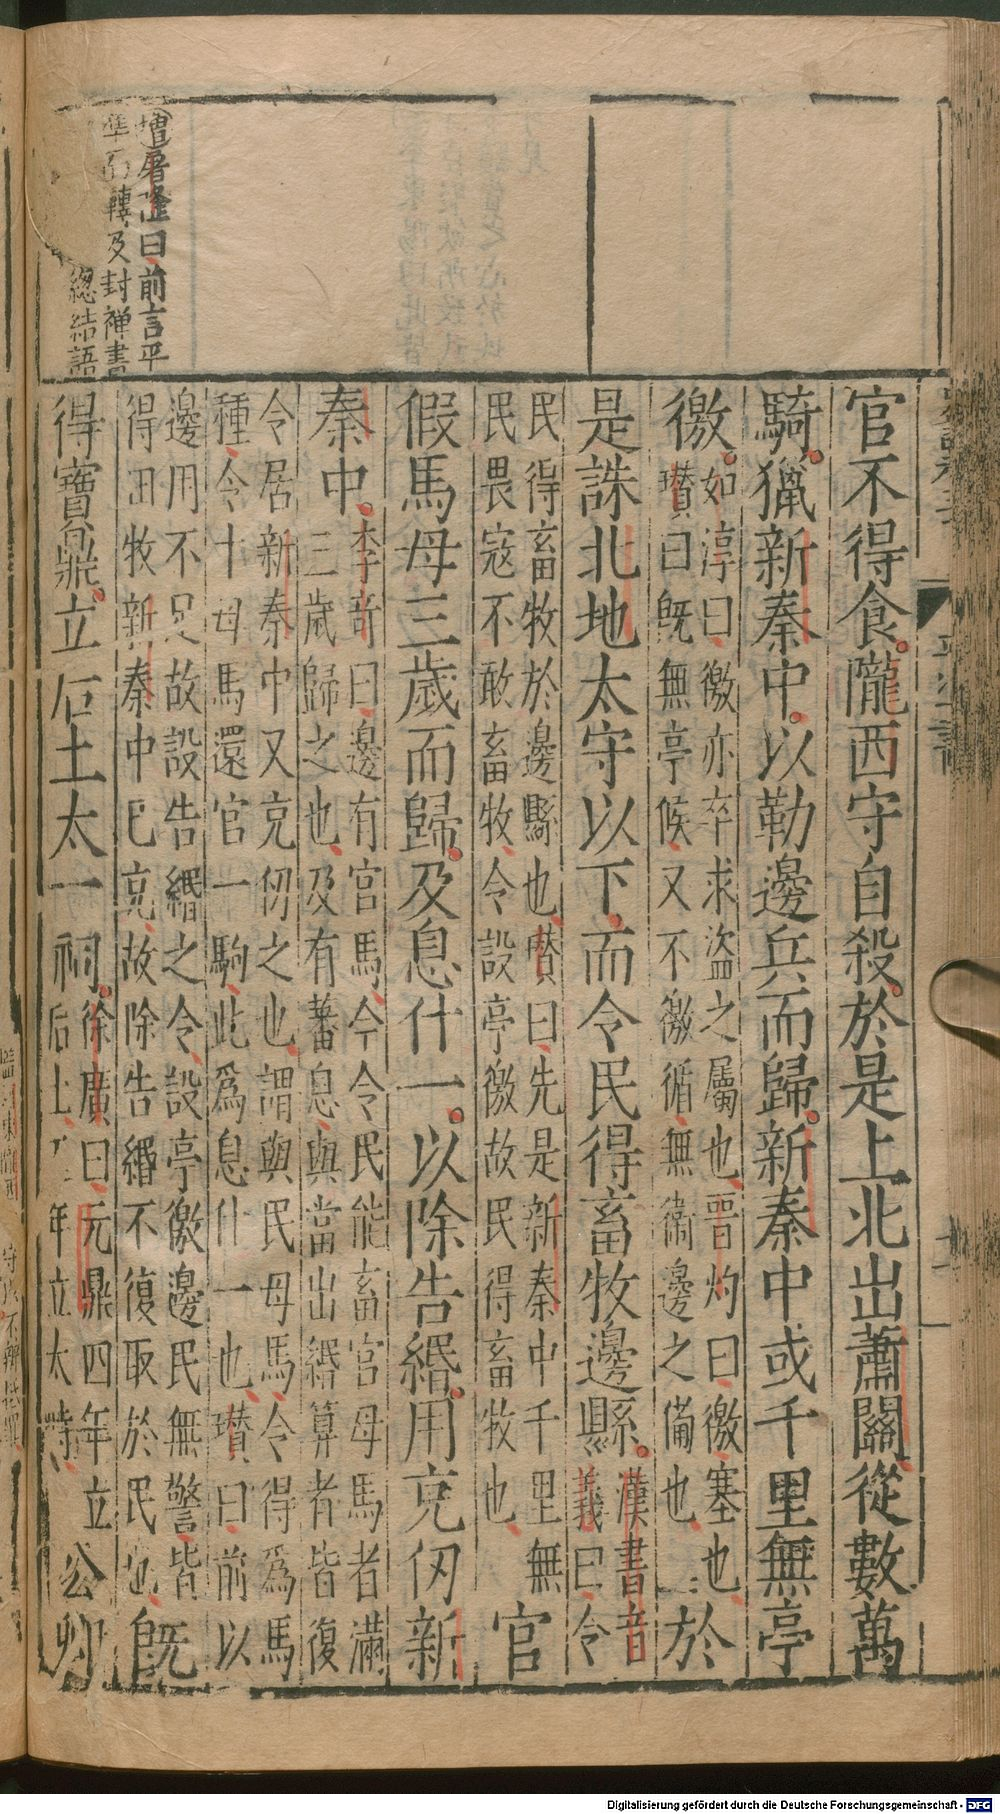 官不得食。隴西守自殺。於是上北出蕭關。從數萬
騎。獵新秦中。以勒邊兵而歸。新秦中或千里無亭
徼。
如淳曰、徼亦卒求盜之屬也、晉灼曰、徼、塞也、
瓚曰、旣無亭候、又不徼循、無衞邊之備也、
於
是誅北地太守以下、而令民得畜牧邊縣。
漢書音
義曰、令
民得畜牧於邊縣也、瓚曰、先是新秦中千里無
民畏寇不敢畜牧、令設亭徼、故民得畜牧也、
官
假馬母三歲而歸。及息什一。以除告緡。用充仞新
秦中。
李竒曰、邊有官馬、今令民能畜官母馬者滿
三歲歸之也、及有蕃息、與當出緡算者皆復
令居新秦中、又充仞之也、謂與民母馬、令得爲馬
種、令十母馬還官一駒、此爲息什一也、瓚曰、前以
邊用不足、故設告緡之令、設亭徼、邊民無警、皆
得田牧新秦中、已充、故除告緡不復取於民也、
旣
得寶鼎。立后土太一祠。
徐廣曰、元鼎四年立
后土、 年立太畤、
公卿
增屠隆曰前言平
準而轉及封禪書
總結語
Digitalisierung gefördert durch die Deutsche Forschungsgemeinschaft - DFG